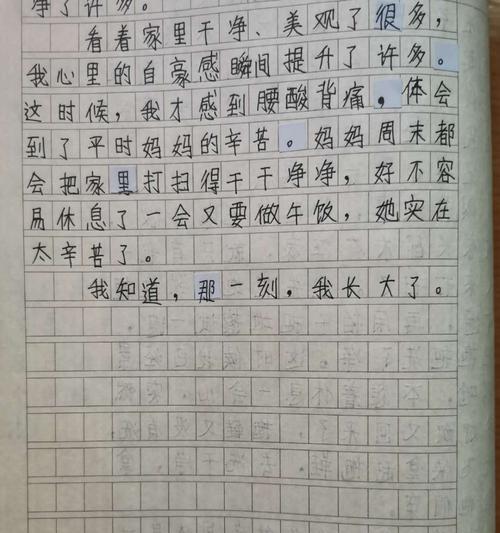 净了许多。
看着家里干净、美观了很多，
我心里的自豪感瞬间提升了许多。
这时候，我才感到腰酸背痛，体会
到了平时妈妈的辛苦。妈妈周末都
会把家里打扫得干干净净，好不容
易休息了一会又要做午饭，她实在
太辛苦了。
我知道，那一刻，我长大了。